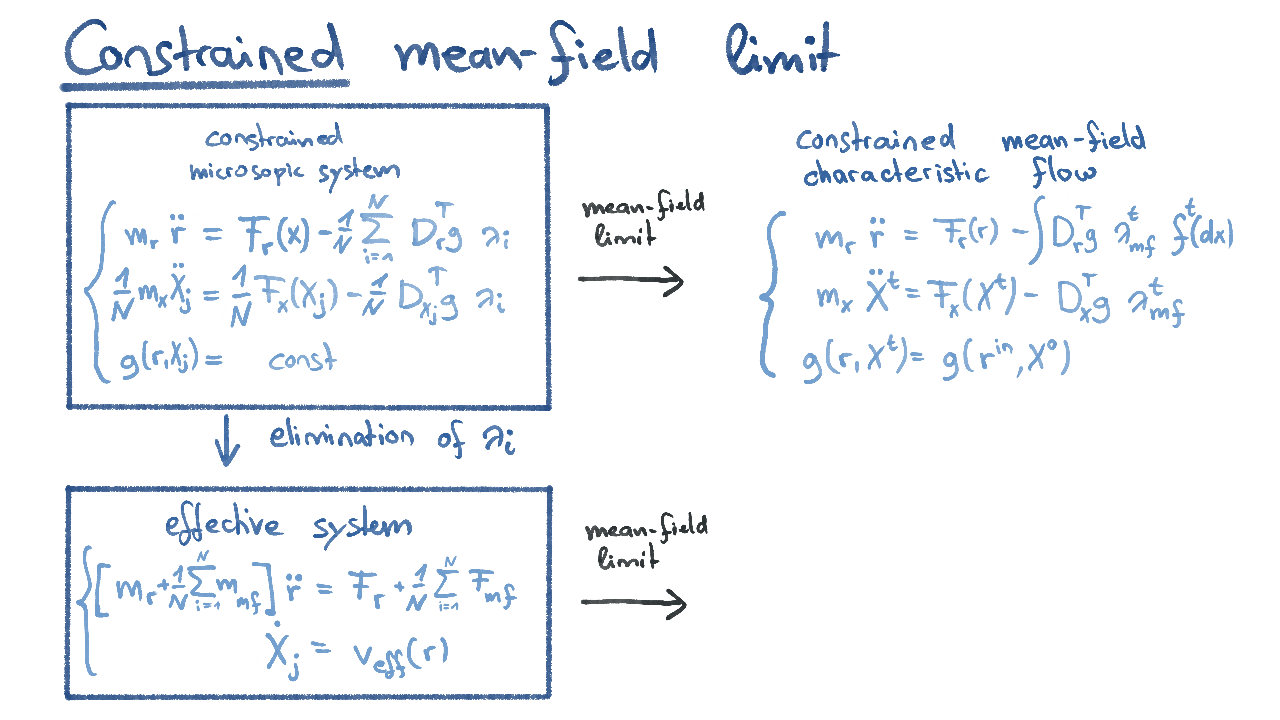 Constrained mean-field limit
constrained
microsopic system
m_r r̈ = F_r(x) - 1/N ∑_{i=1}^{N} D_r^T g λ_i
1/N m_x Ẍ_j = 1/N F_x(X_j) - 1/N D_{x_j}^T g λ_i
g(r, X_j) = const
mean-field
limit
constrained mean-field
characteristic flow
m_r r̈ = F_r(r) - ∫ D_r^T g λ_mf^t f^t(dx)
m_x Ẍ^t = F_x(X^t) - D_x^T g λ_mf^t
g(r, X^t) = g(r^in, X^0)
elimination of λ_i
effective system
[m_r + 1/N ∑_{i=1}^{N} m_mf] r̈ = F_r + 1/N ∑_{i=1}^{N} F_mf
Ẋ_j = v_eff(r)
mean-field
limit